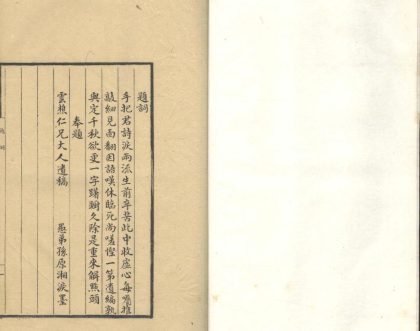 題詞
手把君詩淚兩流生前辛苦此中收虛心每囑推
敲細見面翻因語嘆休臨死尚嗟慳一第遺編孰
與定千秋欲更一字躊躕久除是重來解點頭
奉題
雲樵仁兄大人遺稿
愚弟孫原湘淚墨